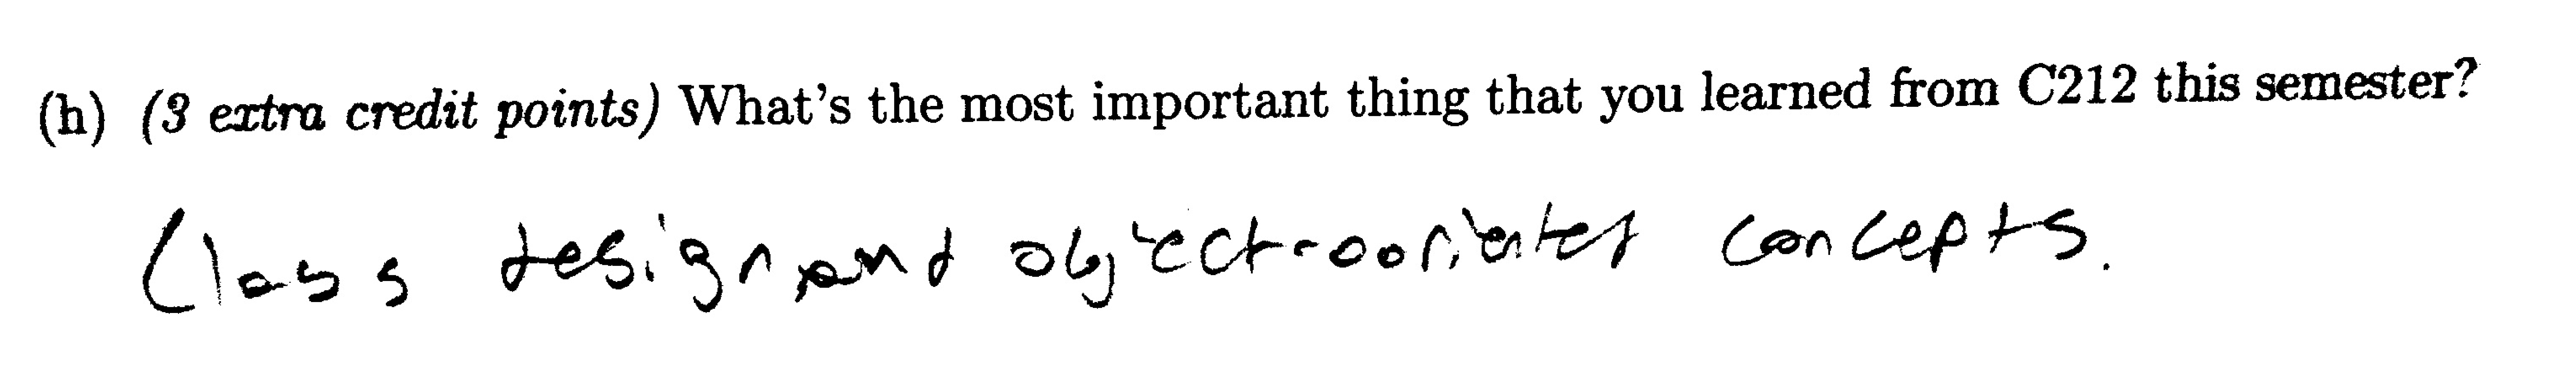 (h) (3 extra credit points) What's the most important thing that you learned from C212 this semester?
Class design and object-ooriented concepts.